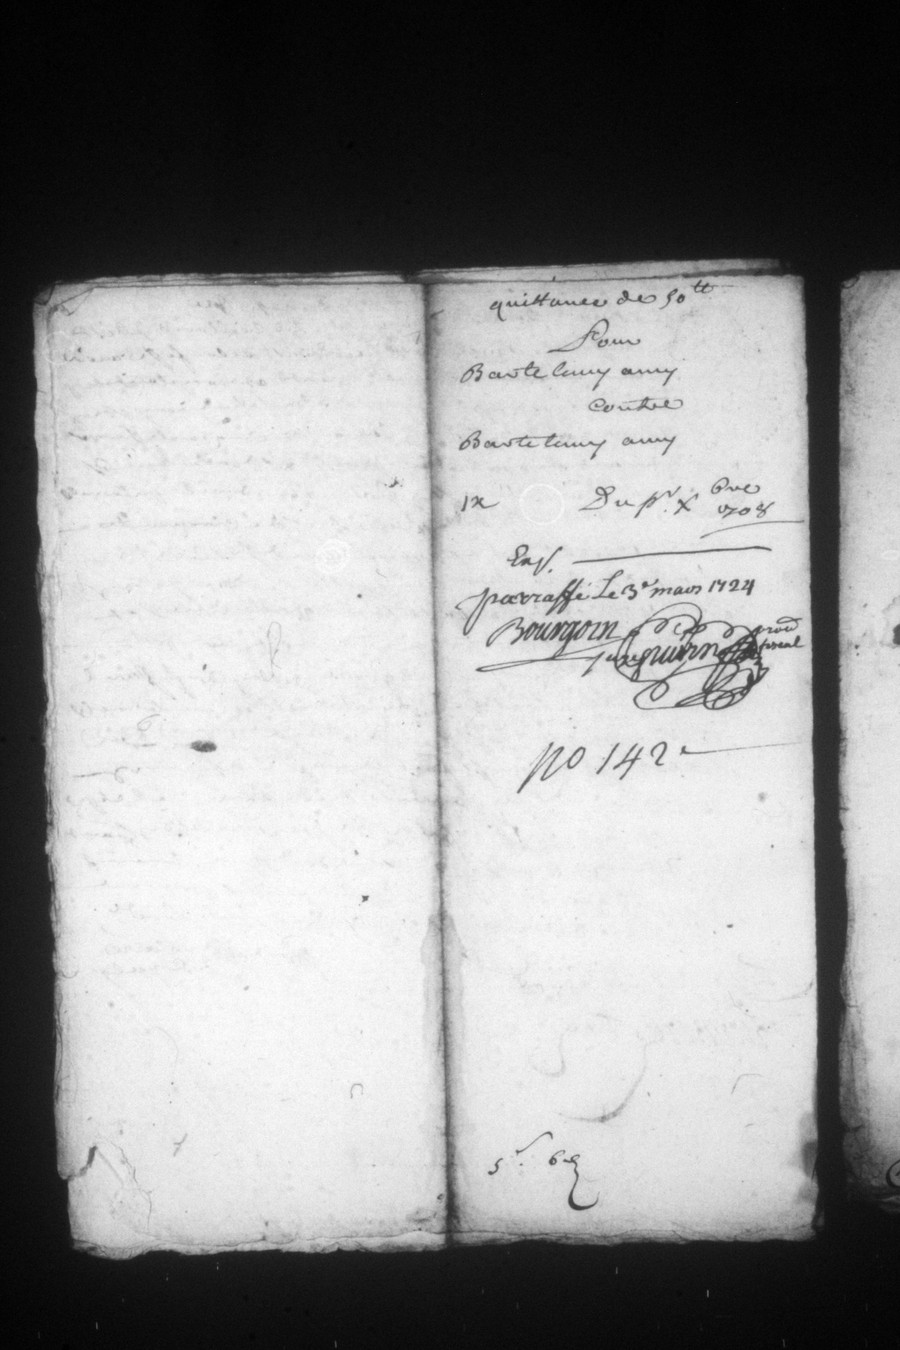 quittance de 50tt
Pour
Bartelemy amy
contre
Bartelemy amy
1x Du pr. Xbre
1708
Exp.
paraffé Le 3e mars 1724
Bourgoin
proc fiscal
no 142
5s. 6d